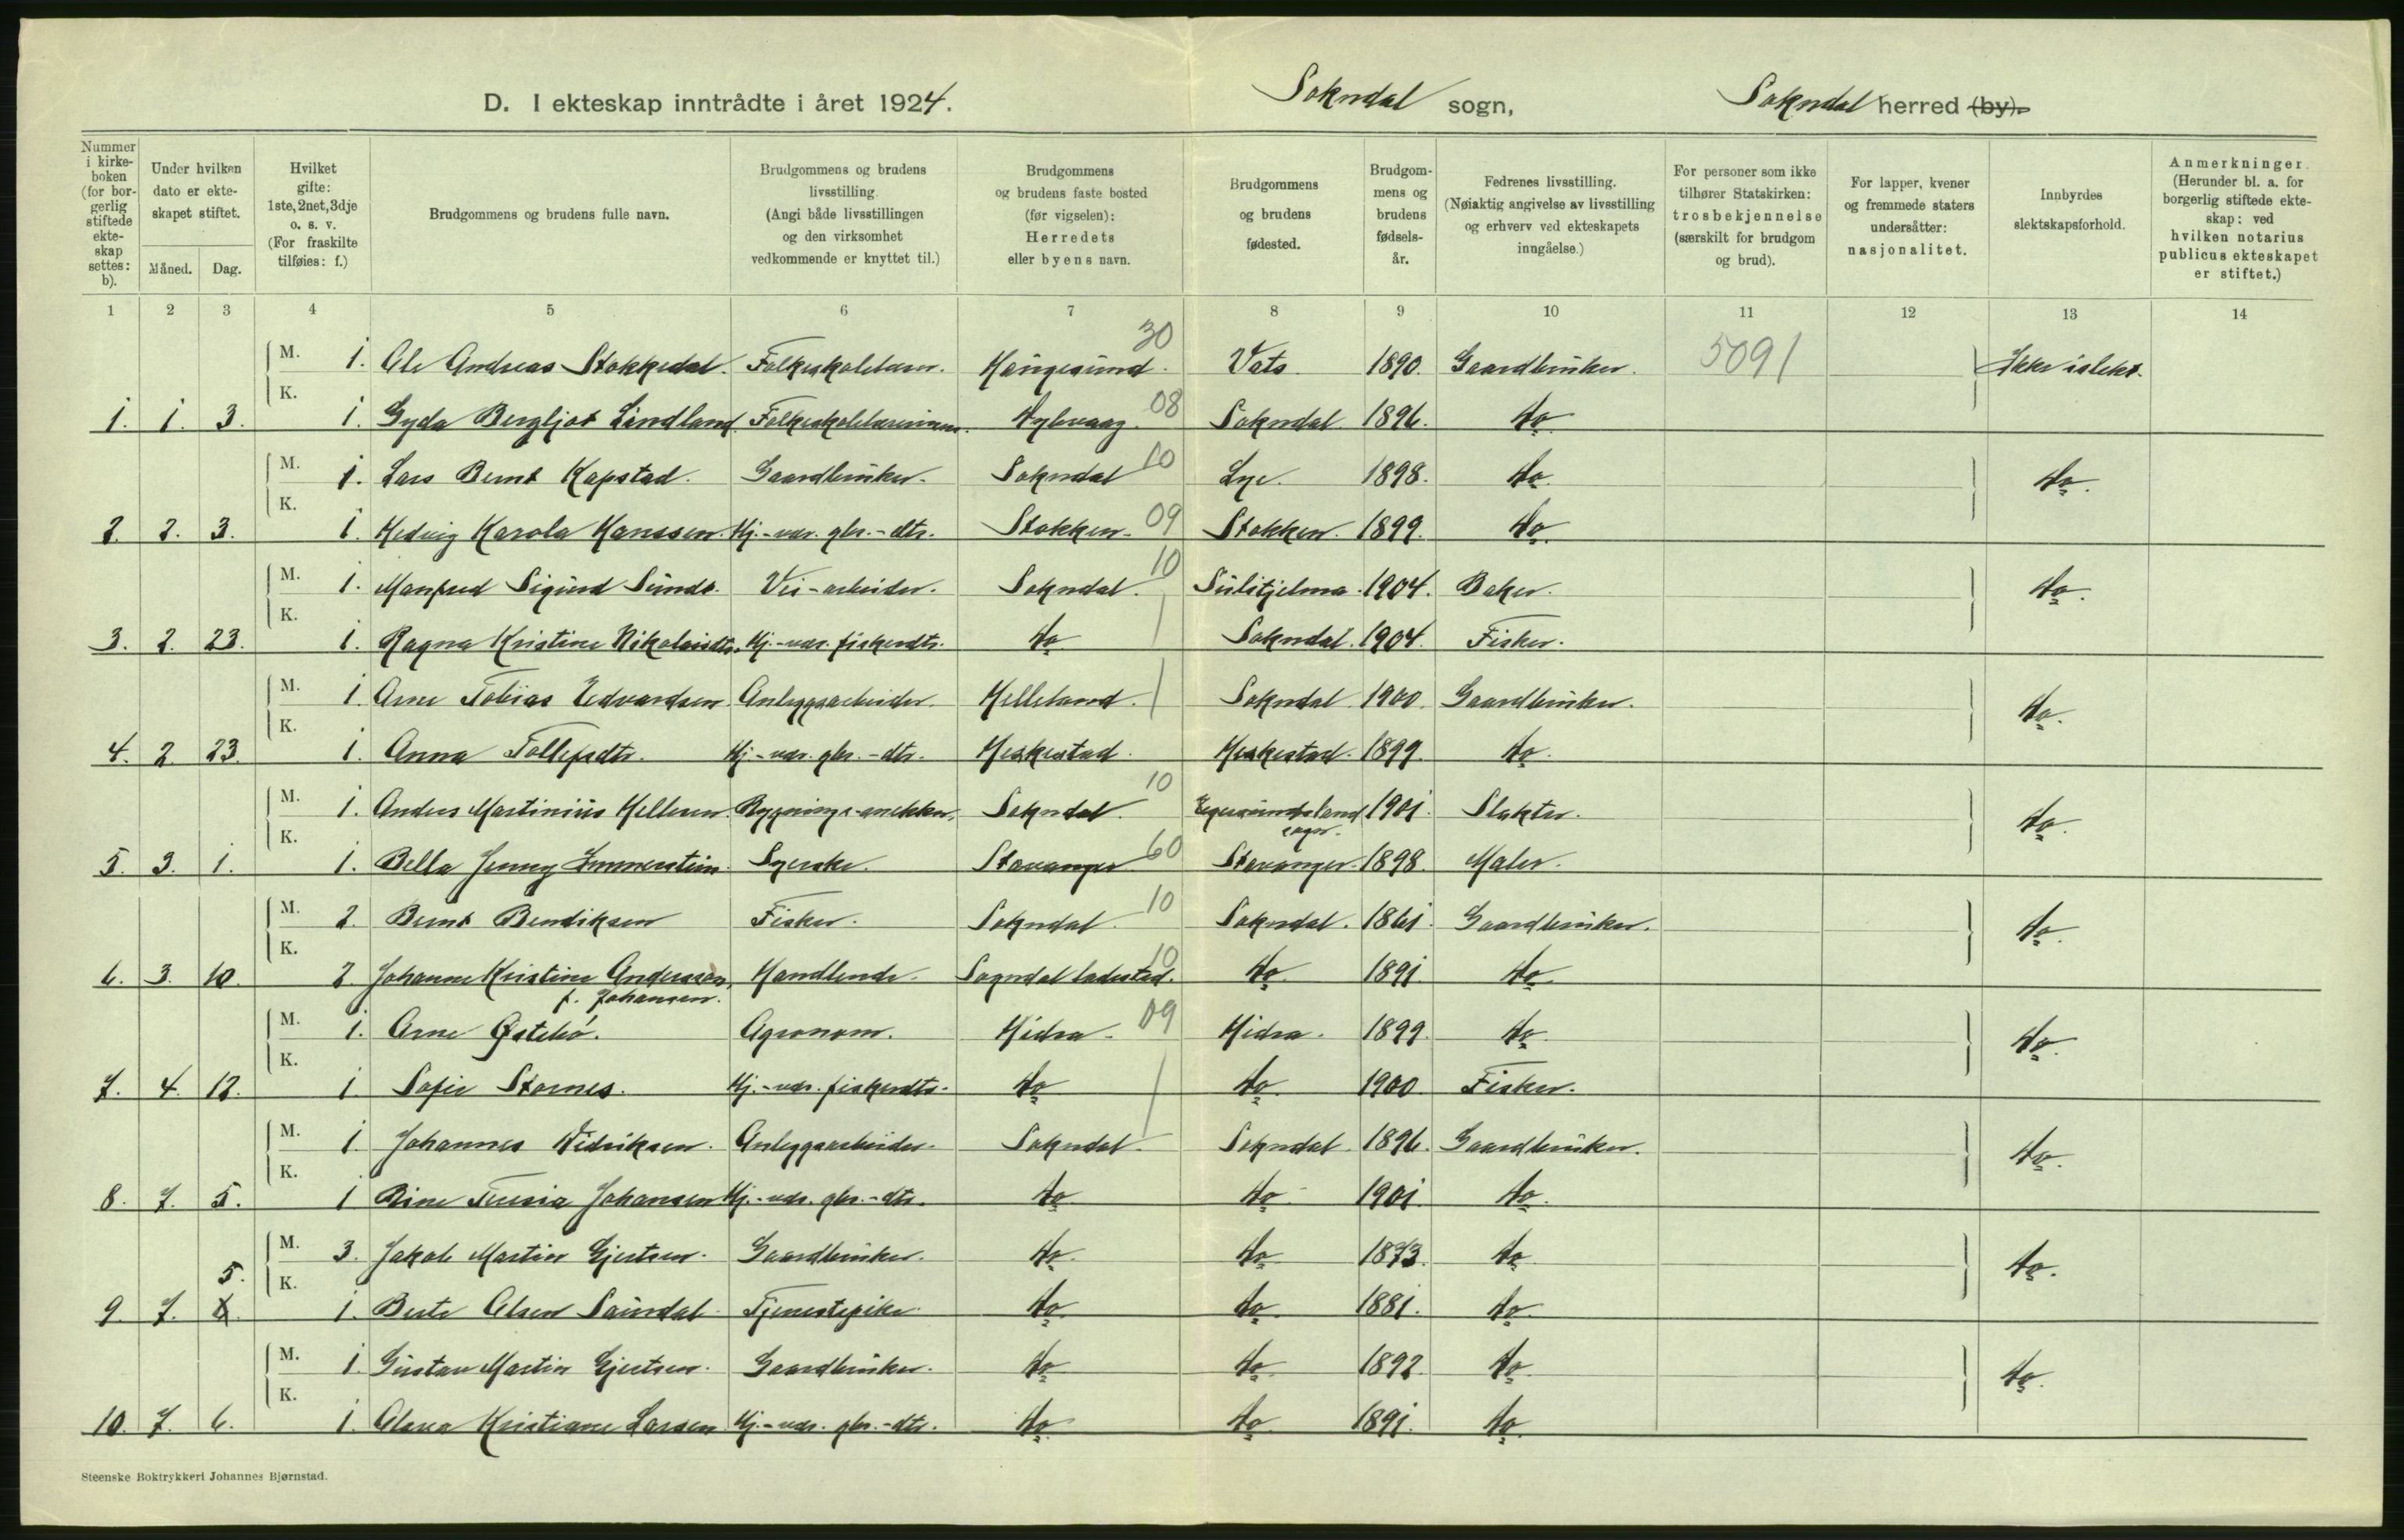 D. I ekteskap inntrådte i året 1924. Sokndal sogn, Sokndal herred (by).
Nummer i kirkeboken (for borgerlig stiftede ekteskap settes: b).
Under hvilken dato er ekteskapet stiftet.
Måned. Dag.
Hvilket gifte: 1ste, 2net, 3dje o. s. v. (For fraskilte tilføies: f.)
Brudgommens og brudens fulle navn.
Brudgommens og brudens livsstilling. (Angi både livsstillingen og den virksomhet vedkommende er knyttet til.)
Brudgommens og brudens faste bosted (før vigselen): Herredets eller byens navn.
Brudgommens og brudens fødested.
Brudgommens og brudens fødselsår.
Fedrenes livsstilling. (Nøiaktig angivelse av livsstilling og erhverv ved ekteskapets inngåelse.)
For personer som ikke tilhører Statskirken: trosbekjennelse (særskilt for brudgom og brud).
For lapper, kvener og fremmede staters undersåtter: nasjonalitet.
Innbyrdes slektskapsforhold.
Anmerkninger. (Herunder bl. a. for borgerlig stiftede ekteskap: ved hvilken notarius publicus ekteskapet er stiftet.)
1 2 3 4 5 6 7 8 9 10 11 12 13 14
M. 1. Ole Andreas Stokkedal. Folkeskolelærer. Haugesund. 30 Vats. 1890. Gaardbruker. 5091 Ikke i slekt.
1. 1. 3. K. 1. Gyda Bergljot Lindland. Folkeskolelærerinne. 08 Sokndal 1896. do
M. 1. Lars Bernt Kapstad. Gaardbruker. Sokndal 10 Lye. 1898. do. do.
2. 2. 3. K. 1. Hedvig Karola Hanssen. Hj.-vær. gbr.-dtr. Stokken. 09 Stokken. 1899. do.
M. 1. Manfred Sigurd Sunde. Vei-arbeider. Sokndal. 10 Sulitjelma. 1904. Baker. do.
3. 2. 23. K. 1. Ragna Kristine Nikolaisdtr. Hj.-vær. fiskerdtr. do Sokndal. 1904. Fisker.
M. 1. Arne Tobias Edvardsen. Anleggsarbeider. Helleland. Sokndal. 1900. Gaardbruker. do.
4. 2. 23. K. 1. Anna Tollefsdtr. Hj.-vær. gbr.-dtr. Heskestad. Heskestad. 1899. do.
M. 1. Anders Martinius Hellesen. Bygnings-snekker. Sokndal. 10 Egersunds landsogn. 1901. Slakter. do.
5. 3. 1. K. 1. Bella Jenny Immerstein. Syerske. Stavanger 60 Stavanger. 1898. Maler.
M. 2. Bernt Bendiksen Fisker. Sokndal. 10 Sokndal. 1861. Gaardbruker. do.
6. 3. 10. K. 2. Johanne Kristine Anderssen, f. Johansen. Handlende. Sogndal ladested. 10 do. 1891. do.
M. 1. Arne Østebö. Agronom. Hidra. 09 Hidra. 1899. do. do.
7. 4. 12. K. 1. Sofie Stornes. Hj.-vær. fiskerdtr. do do. 1900. Fisker.
M. 1. Johannes Vidriksen. Anleggsarbeider. Sokndal. Sokndal. 1896. Gaardbruker. do.
8. 7. 5. K. 1 Rine Teresia Johansen Hj.-vær. gbr.-dtr. do do 1901. do.
M. 3. Jakob Martin Gjertsen. Gaardbruker. do. do. 1873. do. do.
9. 7. 5. K. 1. Berte Olsen Saurdal. Tjenestepike. do. do. 1881. do.
M. 1. Gustav Martin Gjertsen. Gaardbruker. do do. 1892. do. do.
10. 7. 6. K. 1. Olava Kristiane Larsen. Hj.-vær. gbr.-dtr. do do. 1891. do.
Steenske Boktrykkeri Johannes Bjørnstad.